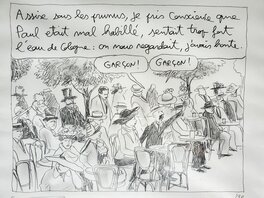 Assise sous les prunus, je pris conscience que
Paul était mal habillé, sentait trop fort
l'eau de Cologne : on nous regardait, j'avais honte.
GARÇON !
GARÇON !